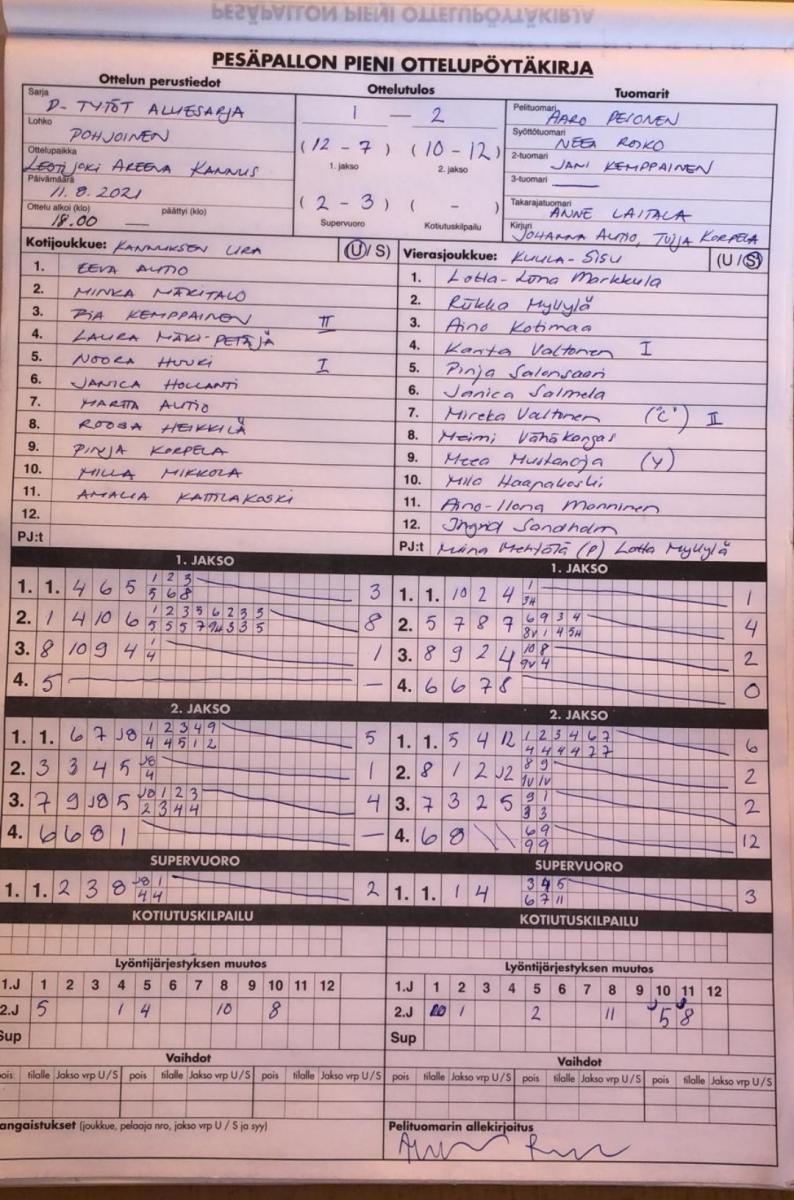 PESÄPALLON PIENI OTTELUPÖYTÄKIRJA
Ottelun perustiedot
Ottelutulos
Tuomarit
Sarja
D-TYTÖT ALUESARJA
Lohko
POHJOINEN
Ottelupaikka
LESTIJOKI AREENA KANNUS
Päivämäärä
11.8.2021
Ottelu alkoi (klo) päättyi (klo)
18.00 —
1 — 2
(12 - 7) (10 - 12)
1. jakso 2. jakso
(2 - 3) ( - )
Supervuoro Kotiutuskilpailu
Pelituomari
AARO PELTONEN
Syöttötuomari
NEEA ROIKO
2-tuomari
JANI KEMPPAINEN
3-tuomari
Takarajatuomari
ANNE LAITALA
Kirjuri
JOHANNA AUTIO, TUIJA KORPELA
Kotijoukkue: KANNUKSEN URA (U/S)
1. EEVA AUTIO
2. MINKA MÄKITALO
3. PIA KEMPPAINEN II
4. LAURA MÄKI-PETÄJÄ
5. NOORA HUUKI I
6. JANICA HOLLANTI
7. MARTTA AUTIO
8. ROOSA HEIKKILÄ
9. PINJA KORPELA
10. MILLA MIKKOLA
11. AMALIA KATTILAKOSKI
12.
PJ:t
Vierasjoukkue: KUULA-SISU (U/S)
1. Lotta-Lona Markkula
2. Riikka Myllylä
3. Aino Kotimaa
4. Kanta Valtonen I
5. Pinja Salonsaari
6. Janica Salmela
7. Mireka Valtonen ("C") II
8. Meimi Vähäkangas
9. Meea Mustanoja (Y)
10. Miia Haapakoski
11. Aino-Ilona Manninen
12. Ingrid Sandholm
PJ:t Miina Mehtälä (P) Lotta Myllylä
1. JAKSO
1. 1. 4 6 5 1 2 3 3
5 6 8
2. 1 4 10 6 1 2 3 5 6 2 3 5 8
5 5 5 7 9H 3 3 5
3. 8 10 9 4 1 1
4
4. 5 —
1. JAKSO
1. 1. 10 2 4 1 1
3H
2. 5 7 8 7 6 9 3 4 4
8V 1 4 5H
3. 8 9 2 4 10 8 2
9V 4
4. 6 6 7 8 0
2. JAKSO
1. 1. 6 7 J8 1 2 3 4 9 5
4 4 5 1 2
2. 3 3 4 5 J8 1
4
3. 7 9 J8 5 J8 1 2 3 4
2 3 4 4
4. 6 6 8 1 —
2. JAKSO
1. 1. 5 4 12 1 2 3 4 6 7 6
4 4 4 4 7 7
2. 8 1 2 J2 8 9 2
1V 1V
3. 7 3 2 5 9 1 2
3 3
4. 6 8 \ \ 6 9 12
9 9
SUPERVUORO
1. 1. 2 3 8 J8 1 2
4 4
SUPERVUORO
1. 1. 1 4 3 4 5 3
6 7 11
KOTIUTUSKILPAILU
KOTIUTUSKILPAILU
Lyöntijärjestyksen muutos
1.J 1 2 3 4 5 6 7 8 9 10 11 12
2.J 5 1 4 10 8
Sup
Lyöntijärjestyksen muutos
1.J 1 2 3 4 5 6 7 8 9 10 11 12
2.J 1 2 11 5 8
Sup
Vaihdot
pois tilalle Jakso vrp U/S pois tilalle Jakso vrp U/S pois tilalle Jakso vrp U/S
Vaihdot
pois tilalle Jakso vrp U/S pois tilalle Jakso vrp U/S pois tilalle Jakso vrp U/S
angaistukset (joukkue, pelaaja nro, jakso vrp U / S ja syy)
Pelituomarin allekirjoitus